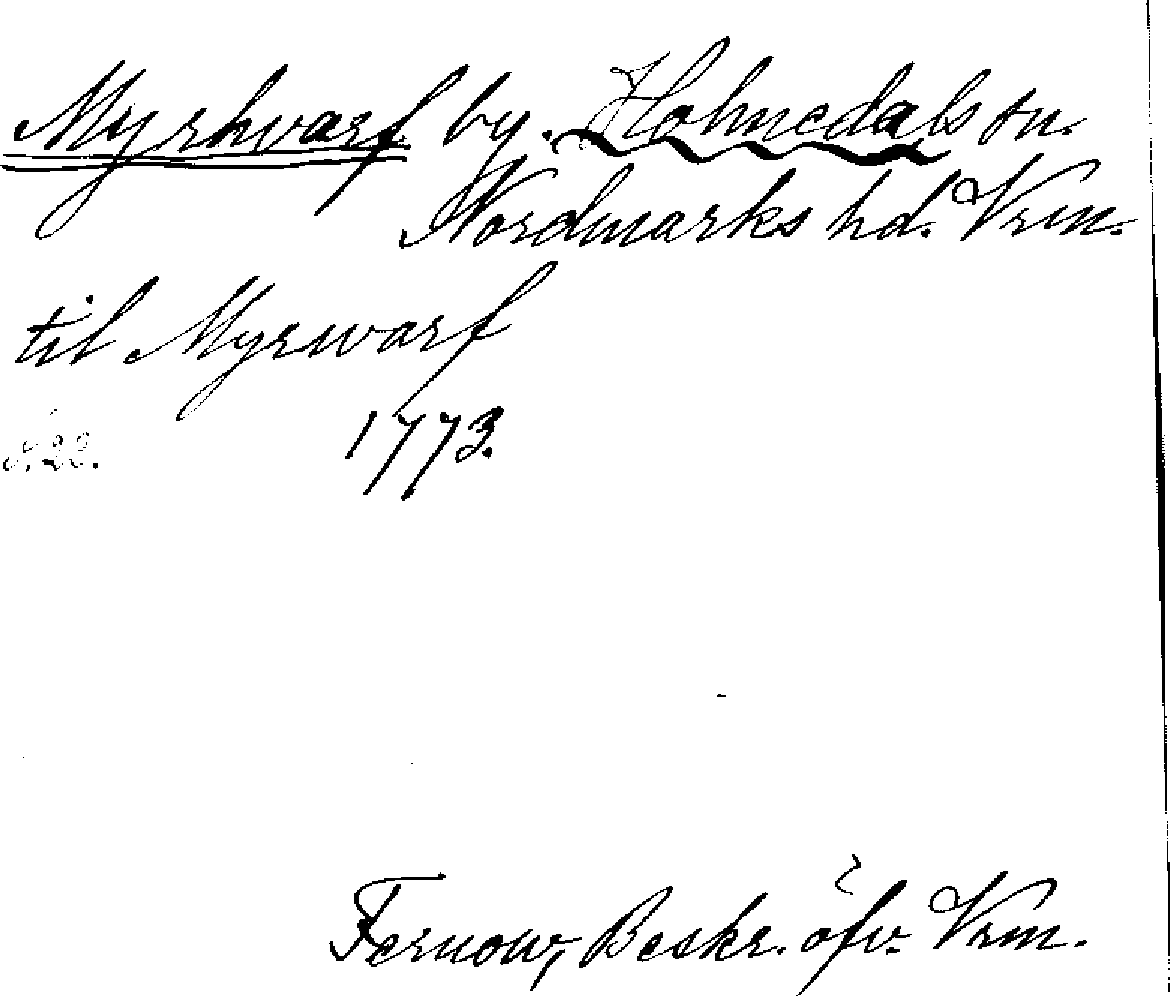 Myrhvarf by. Holmedals sn.
Nordmarks hd. Vrm.
til Myrwarf
1773.
s. 22.
Fernow, Beskr. öfv. Vrm.